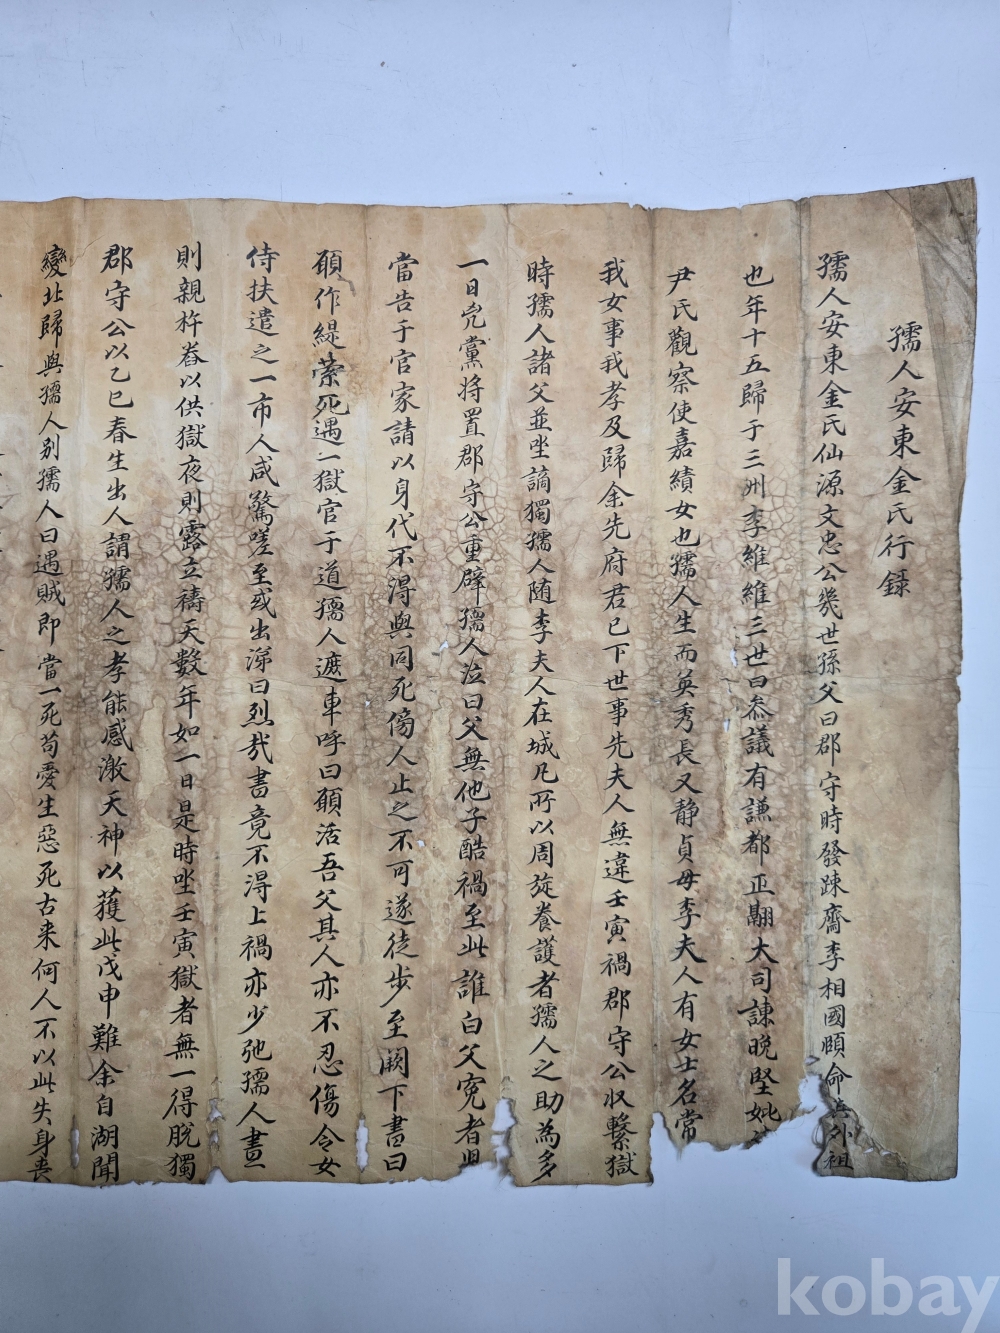 孺人安東金氏行錄
孺人安東金氏仙源文忠公幾世孫父曰郡守時發踈齋李相國頤命其外祖
也年十五歸于三洲李維維三世曰叅議有謙都正翩大司諫晩堅妣
尹氏觀察使嘉績女也孺人生而英秀長又静貞母李夫人有女士名常
我女事我孝及歸余先府君已下世事先夫人無違壬寅禍郡守公收繫獄
時孺人諸父並坐謫獨孺人随李夫人在城凡所以周旋養護者孺人之助為多
一日兇黨将置郡守公重辟孺人泣曰父無他子酷禍至此誰白父寃者
當告于官家請以身代不淂與同死傍人止之不可遂徒步至闕下書曰
願作緹縈死遇一獄官于道孺人遮車呼曰願活吾父其人亦不忍傷令女
侍扶遣之一市人咸驚嗟至或出涕曰烈㢤書竟不淂上禍亦少弛孺人晝
則親杵舂以供獄夜則露立禱天數年如一日是時坐壬寅獄者無一得脫獨
郡守公以乙巳春生出人謂孺人之孝能感激天神以獲此戊申難余自湖聞
變北歸與孺人别孺人曰遇賊即當一死苟愛生惡死古来何人不以此失身喪
kobay